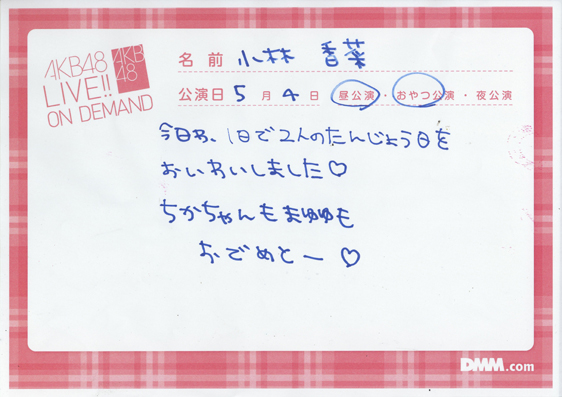 AKB48
LIVE!!
ON DEMAND
AKB
48
名前 小林 香菜
公演日 5月4日 昼公演・おやつ公演・夜公演
今日わ、1日で2人のたんじょう日を
おいわいしました♡
ちかちゃんもまゆゆも
おでめとー♡
DMM.com